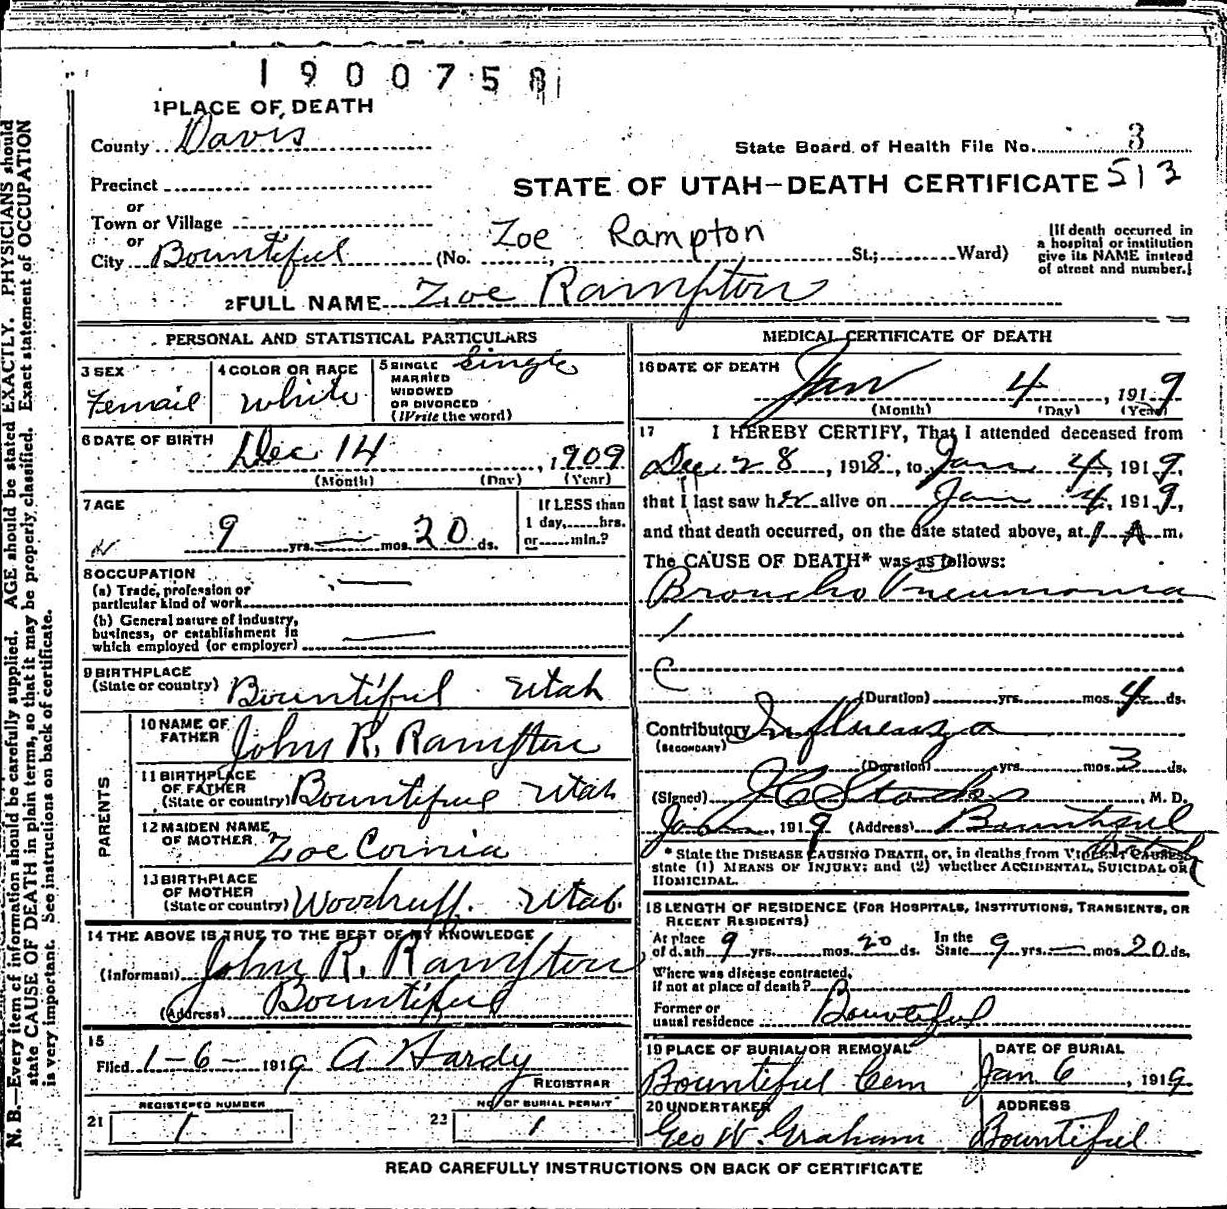 1900758
1 PLACE OF DEATH
County Davis
State Board of Health File No. 3
Precinct
STATE OF UTAH—DEATH CERTIFICATE 513
or
Town or Village
or
City Bountiful (No. Zoe Rampton St.; Ward)
[If death occurred in
a hospital or institution
give its NAME instead
of street and number.]
2 FULL NAME Zoe Rampton
PERSONAL AND STATISTICAL PARTICULARS
3 SEX Femail
4 COLOR OR RACE White
5 SINGLE Single
MARRIED
WIDOWED
OR DIVORCED
(Write the word)
6 DATE OF BIRTH Dec 14, 1909
(Month) (Day) (Year)
7 AGE
9 yrs. — mos. 20 ds.
If LESS than
1 day, hrs.
or min.?
8 OCCUPATION
(a) Trade, profession or
particular kind of work —
(b) General nature of industry,
business, or establishment in
which employed (or employer) —
9 BIRTHPLACE
(State or country) Bountiful Utah
PARENTS
10 NAME OF
FATHER John R. Rampton
11 BIRTHPLACE
OF FATHER
(State or country) Bountiful Utah
12 MAIDEN NAME
OF MOTHER Zoe Cornia
13 BIRTHPLACE
OF MOTHER
(State or country) Woodruff. Utah.
14 THE ABOVE IS TRUE TO THE BEST OF MY KNOWLEDGE
(Informant) John R. Rampton
(Address) Bountiful
15
Filed 1-6- 1919 A Hardy
REGISTRAR
REGISTERED NUMBER
21 1
NO. OF BURIAL PERMIT
22 1
MEDICAL CERTIFICATE OF DEATH
16 DATE OF DEATH
Jan 4, 1919
(Month) (Day) (Year)
17 I HEREBY CERTIFY, That I attended deceased from
Dec 28, 1918, to Jan 4, 1919,
that I last saw her alive on Jan 4, 1919,
and that death occurred, on the date stated above, at 1 A m.
The CAUSE OF DEATH* was as follows:
Broncho Pneumonia
(Duration) yrs. mos. 4 ds.
Contributory Influenza
(SECONDARY)
(Duration) yrs. mos. 3 ds.
(Signed) J C Stocks, M. D.
Jan, 1919 (Address) Bountiful
Utah
* State the DISEASE CAUSING DEATH, or, in deaths from VIOLENT CAUSES
state (1) MEANS OF INJURY; and (2) whether ACCIDENTAL, SUICIDAL OR
HOMICIDAL.
18 LENGTH OF RESIDENCE (FOR HOSPITALS, INSTITUTIONS, TRANSIENTS, OR
RECENT RESIDENTS)
At place In the
of death 9 yrs. mos. 20 ds. State 9 yrs. — mos. 20 ds.
Where was disease contracted,
if not at place of death?
Former or
usual residence Bountiful
19 PLACE OF BURIAL OR REMOVAL
Bountiful Cem
DATE OF BURIAL
Jan 6, 1919.
20 UNDERTAKER
Geo W. Graham
ADDRESS
Bountiful
READ CAREFULLY INSTRUCTIONS ON BACK OF CERTIFICATE
N. B.—Every item of information should be carefully supplied. AGE should be stated EXACTLY. PHYSICIANS should
state CAUSE OF DEATH in plain terms, so that it may be properly classified. Exact statement of OCCUPATION
is very important. See instructions on back of certificate.